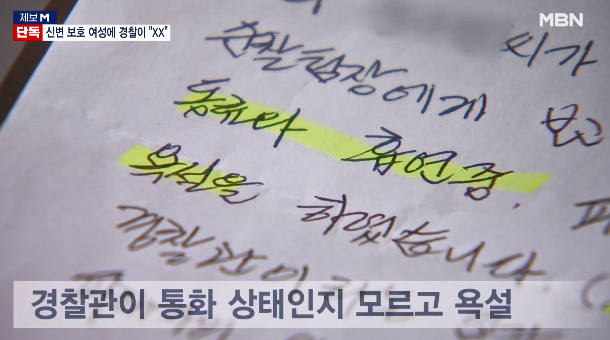 제보M
MBN
단독 신변 보호 여성에 경찰이 "XX"
씨가
순찰팀장에게 보고
동료와 흡연중.
욕설을 하였습니다.
경찰관이
경찰관이 통화 상태인지 모르고 욕설